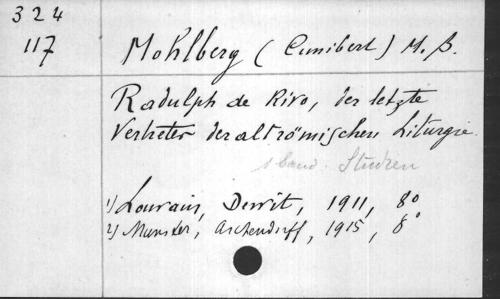 324
117
Mohlberg (Cunibert) M. B.
Radulph de Rivo, der letzte
Vertreter der altrömischen Liturgie.
1 Band. Studien
1) Louvain, Dewit, 1911, 8°
2) Munster, Aschendorff, 1915, 8°